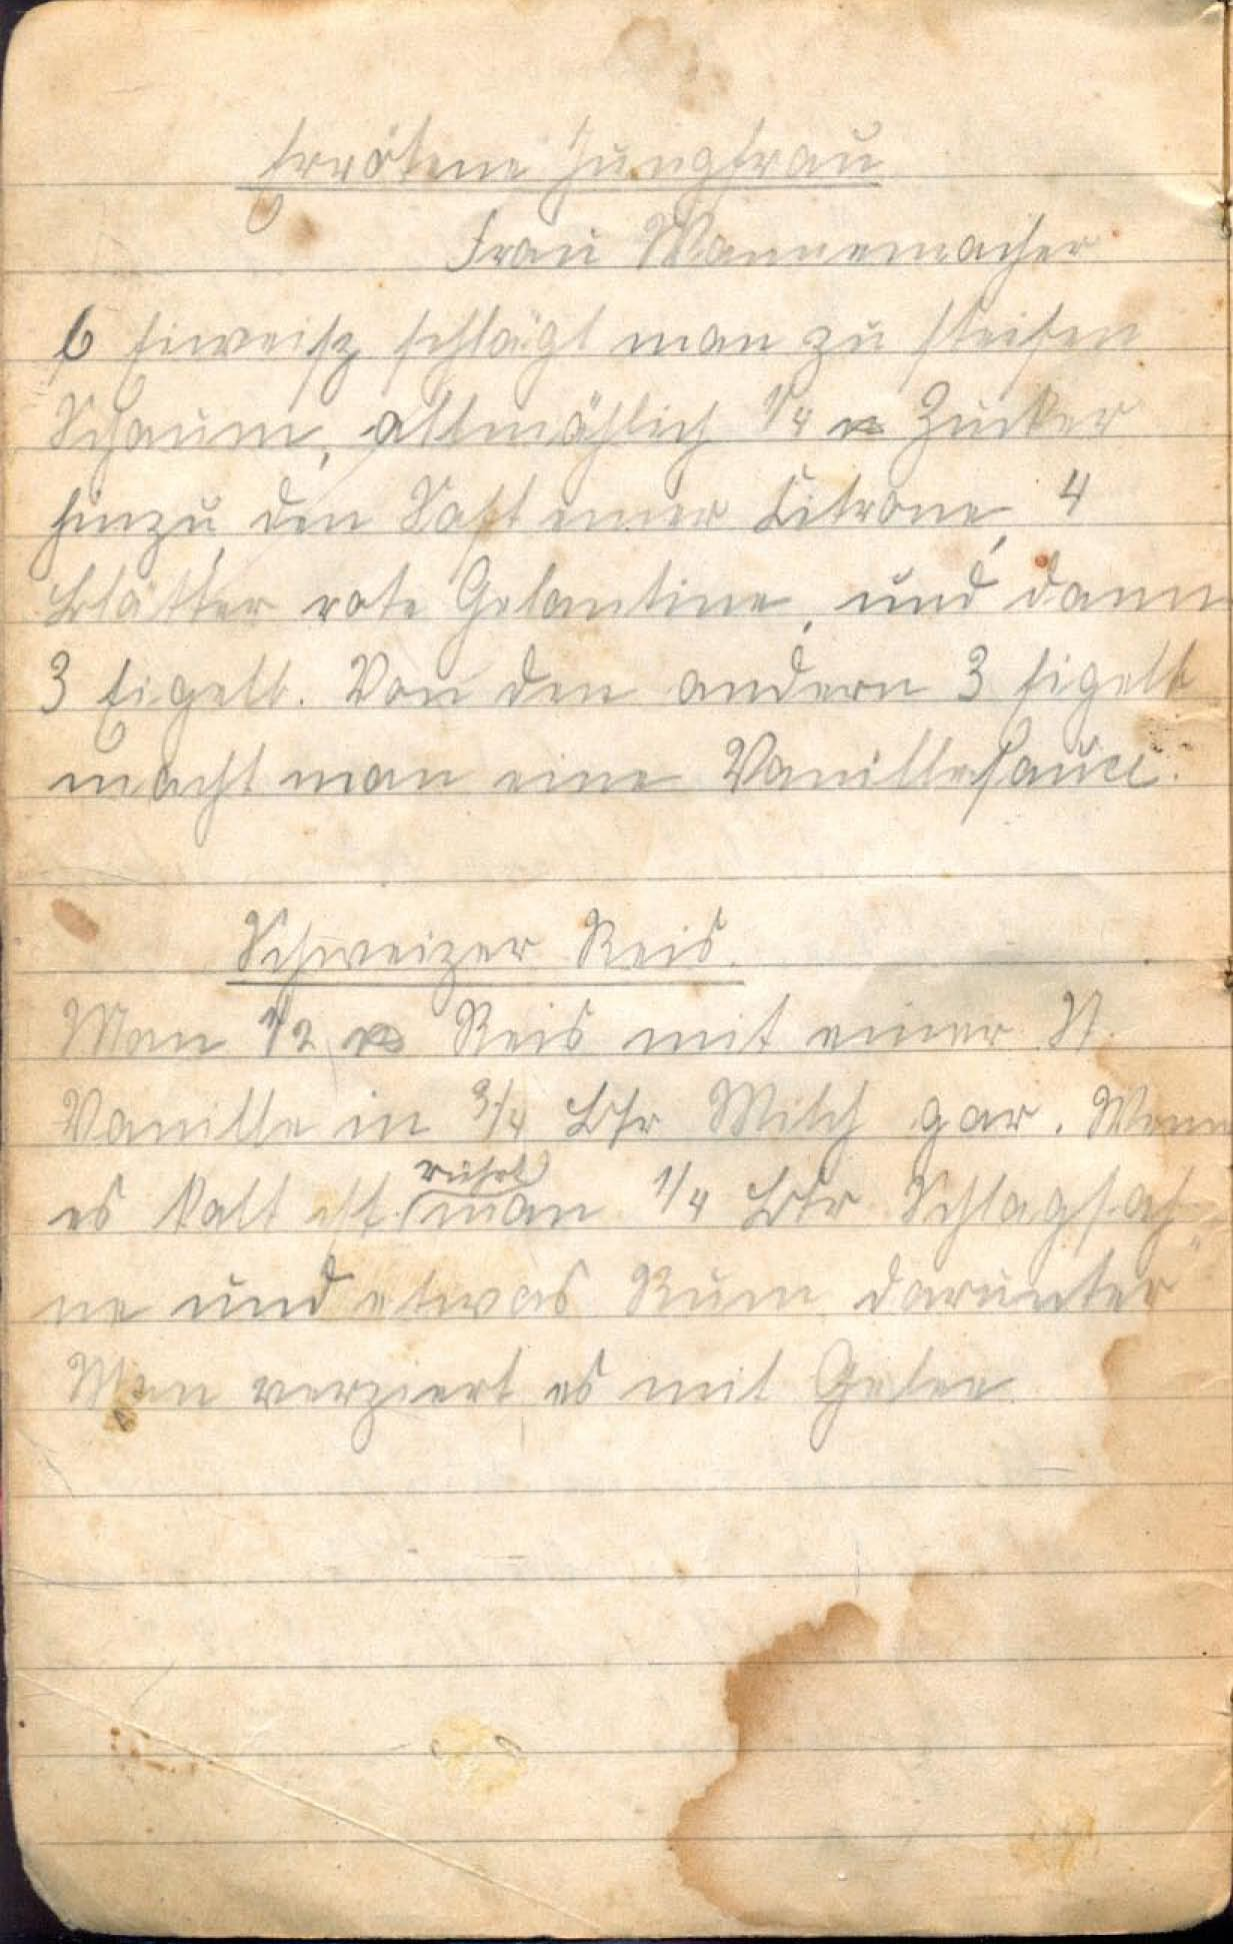 Errötene Jungfrau
Frau Wannemacher
6 Eiweisz schlägt man zu steifen
Schaum, allmählich 1/4 ℔ Zucker
hinzu, den Saft einer Citrone, 4
Blätter rote Gelantine, und dann
3 Eigelb. Von den andern 3 Eigelb
macht man eine Vanillesauce.
Schweizer Reis.
Man 1/2 ℔ Reis mit einer St.
Vanille in 3/4 Ltr Milch gar. Wenn
rührt
es kalt ist man 1/4 Ltr Schlagsah-
ne und etwas Rum darunter
Man verziert es mit Gelee